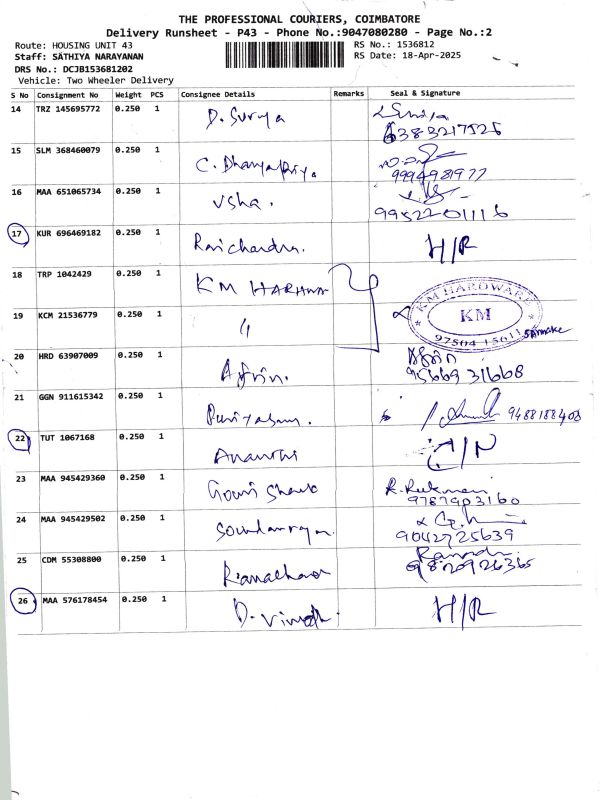 THE PROFESSIONAL COURIERS, COIMBATORE
Delivery Runsheet - P43 - Phone No.:9047080280 - Page No.:2
Route: HOUSING UNIT 43
RS No.: 1536812
Staff: SATHIYA NARAYANAN
RS Date: 18-Apr-2025
DRS No.: DCJB153681202
Vehicle: Two Wheeler Delivery
S No Consignment No Weight PCS Consignee Details Remarks Seal & Signature
14 TRZ 145695772 0.250 1 D. Surya
6383217525
15 SLM 368460079 0.250 1 C. Dhanyapriya
9994981977
16 MAA 651065734 0.250 1 Usha.
9952201116
17 KUR 696469182 0.250 1 Ravichandra. H/R
18 TRP 1042429 0.250 1 KM
KM HARDWARE
KM
97504 15611
19 KCM 21536779 0.250 1 "
20 HRD 63907009 0.250 1 Afrin.
95669 31668
21 GGN 911615342 0.250 1 9488188408
22 TUT 1067168 0.250 1 Ananthi
23 MAA 945429360 0.250 1 Gowri
9787903160
24 MAA 945429502 0.250 1
9042725639
25 CDM 55308800 0.250 1
9820926365
26 MAA 576178454 0.250 1 D. Vinoth. H/R